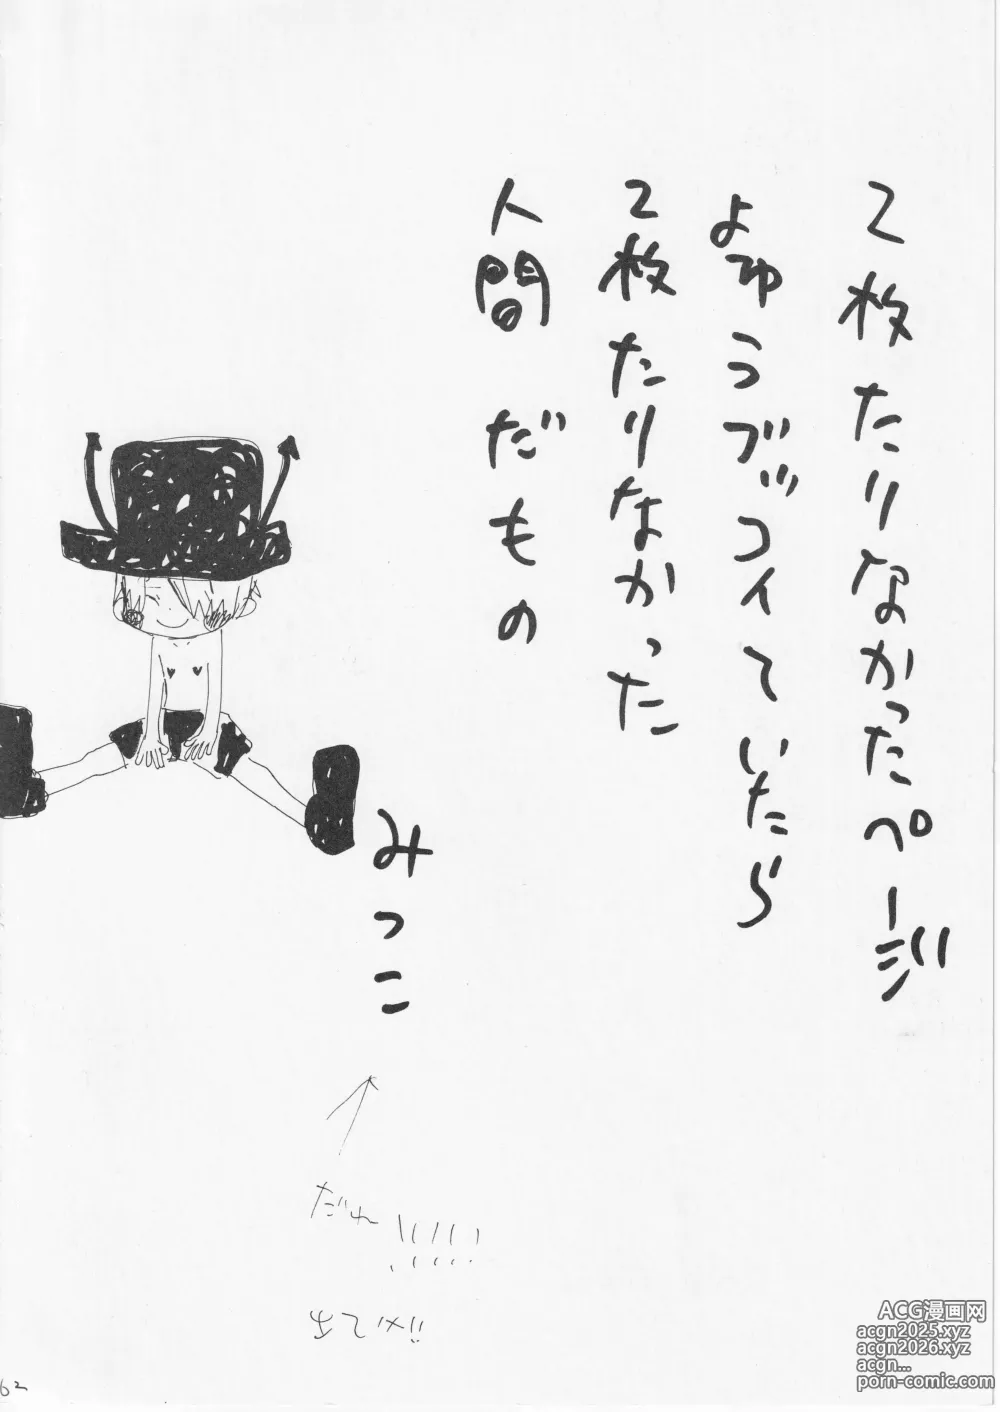 2枚たりなかったページ
よゆうブッコイていたら
2枚たりなかった
人間だもの
みつこ
だれ!!!!!
62
ACG漫画网
acgn2025.xyz
acgn2026.xyz
acgn...
porn-comic.com